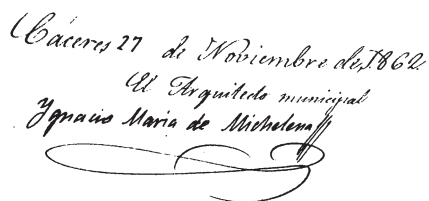 Cáceres 27 de Noviembre de 1.862
El Arquitecto municipal
Ygnacio María de Michelena